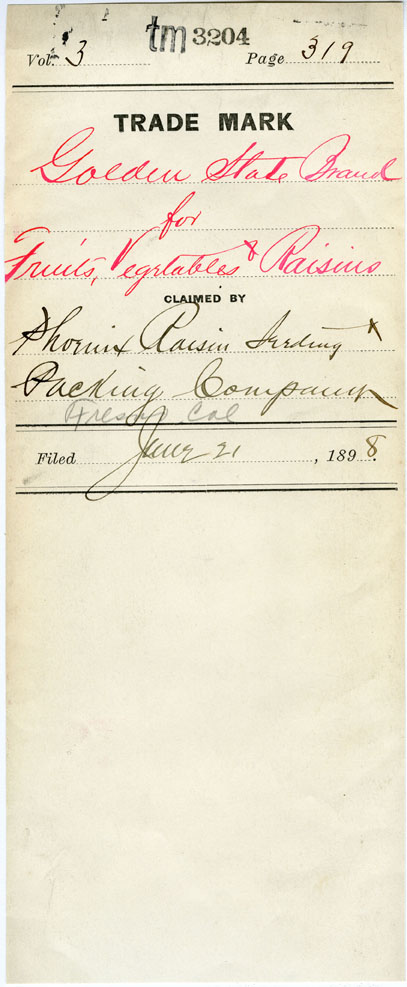 tm 3204
Vol. 3 Page 319
TRADE MARK
Golden State Brand
for
Fruits, Vegetables & Raisins
CLAIMED BY
Phoenix Raisin Seeding &
Packing Company
Fresno Cal
Filed June 21, 1898.